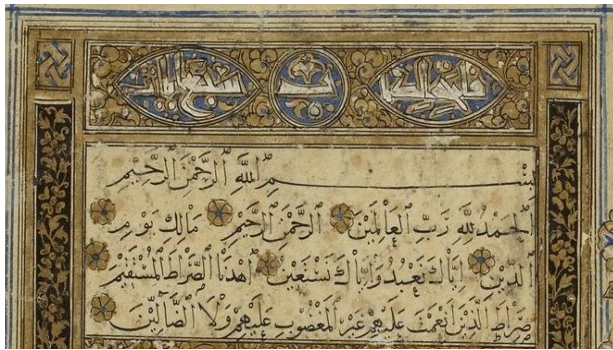 فاتحة سبع آيات
بِسْمِ اللَّهِ الرَّحْمٰنِ الرَّحِيمِ
الْحَمْدُ لِلَّهِ رَبِّ الْعَالَمِينَ الرَّحْمٰنِ الرَّحِيمِ مَالِكِ يَوْمِ
الدِّينِ إِيَّاكَ نَعْبُدُ وَإِيَّاكَ نَسْتَعِينُ اهْدِنَا الصِّرَاطَ الْمُسْتَقِيمَ
صِرَاطَ الَّذِينَ أَنْعَمْتَ عَلَيْهِمْ غَيْرِ الْمَغْضُوبِ عَلَيْهِمْ وَلَا الضَّالِّينَ